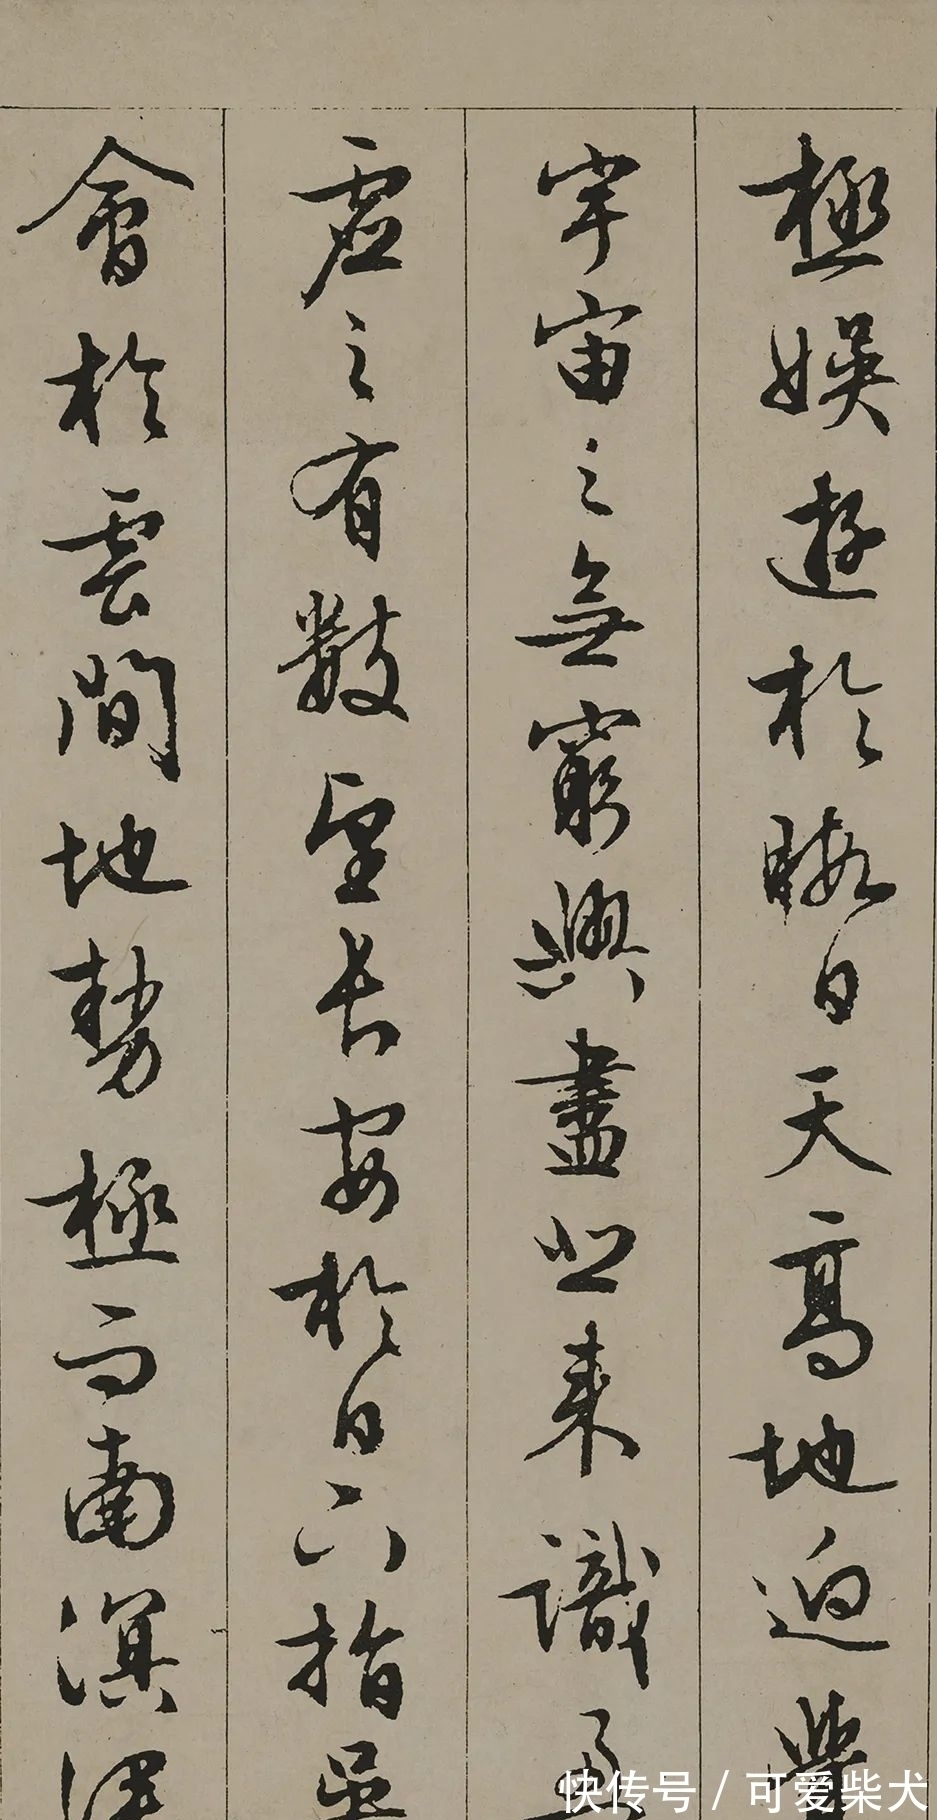 極娛遊於暇日天高地逈覺
宇宙之無窮興盡悲來識盈
虛之有數望長安於日下指吳
會於雲間地勢極而南溟深
快传号 / 可爱柴犬